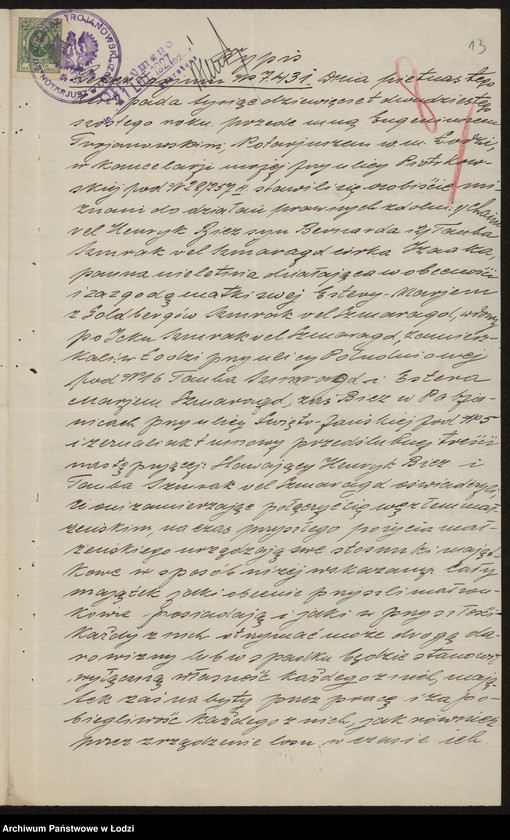 13
TROJANOWSKI
NOTARJUSZ
1927
Wypis
Repertorium № 7431. Dnia piętnastego
listopada tysiąc dziewięćset dwudziestego
szóstego roku, przede mną Eugenjuszem
Trojanowskim, Notarjuszem w m. Łodzi,
w kancelarji mojej przy ulicy Piotrkow-
skiej pod № stawili się osobiście mi
znani do działań prawnych zdolni: 1/ Chaim
vel Henryk Bicz syn Bernarda i 2/ Tauba
Szmrak vel Szmaragd córka Izaaka,
panna nieletnia działająca w obecności
i za zgodą matki swej Estery-Marjem
z Goldbergów Szmrak vel Szmaragd, wdowy
po Icku Szmrak vel Szmaragd, zamiesz-
kali: w Łodzi przy ulicy Południowej
pod №16 Tauba Szmaragd i Estera
Marjem Szmaragd, zaś Bicz w Pabja-
nicach przy ulicy Święto-Jańskiej pod №5
i zeznali akt umowy przedślubnej treści
następującej: Stawający Henryk Bicz i
Tauba Szmrak vel Szmaragd oświadczyli,
że oni zamierzając połączyć się węzłem mał-
żeńskim, na czas przyszłego pożycia mał-
żeńskiego urządzają swe stosunki mająt-
kowe w sposób niżej wskazany: Cały
majątek jaki obecnie przyszli małżon-
kowie posiadają i jaki w przyszłości
każdy z nich otrzymać może drogą da-
rowizny lub w spadku będzie stanowił
wyłączną własność każdego z nich, mają-
tek zaś nabyty przez pracę i za po-
biegliwość każdego z nich, jak również
przez zrządzenie losu w czasie ich
Archiwum Państwowe w Łodzi